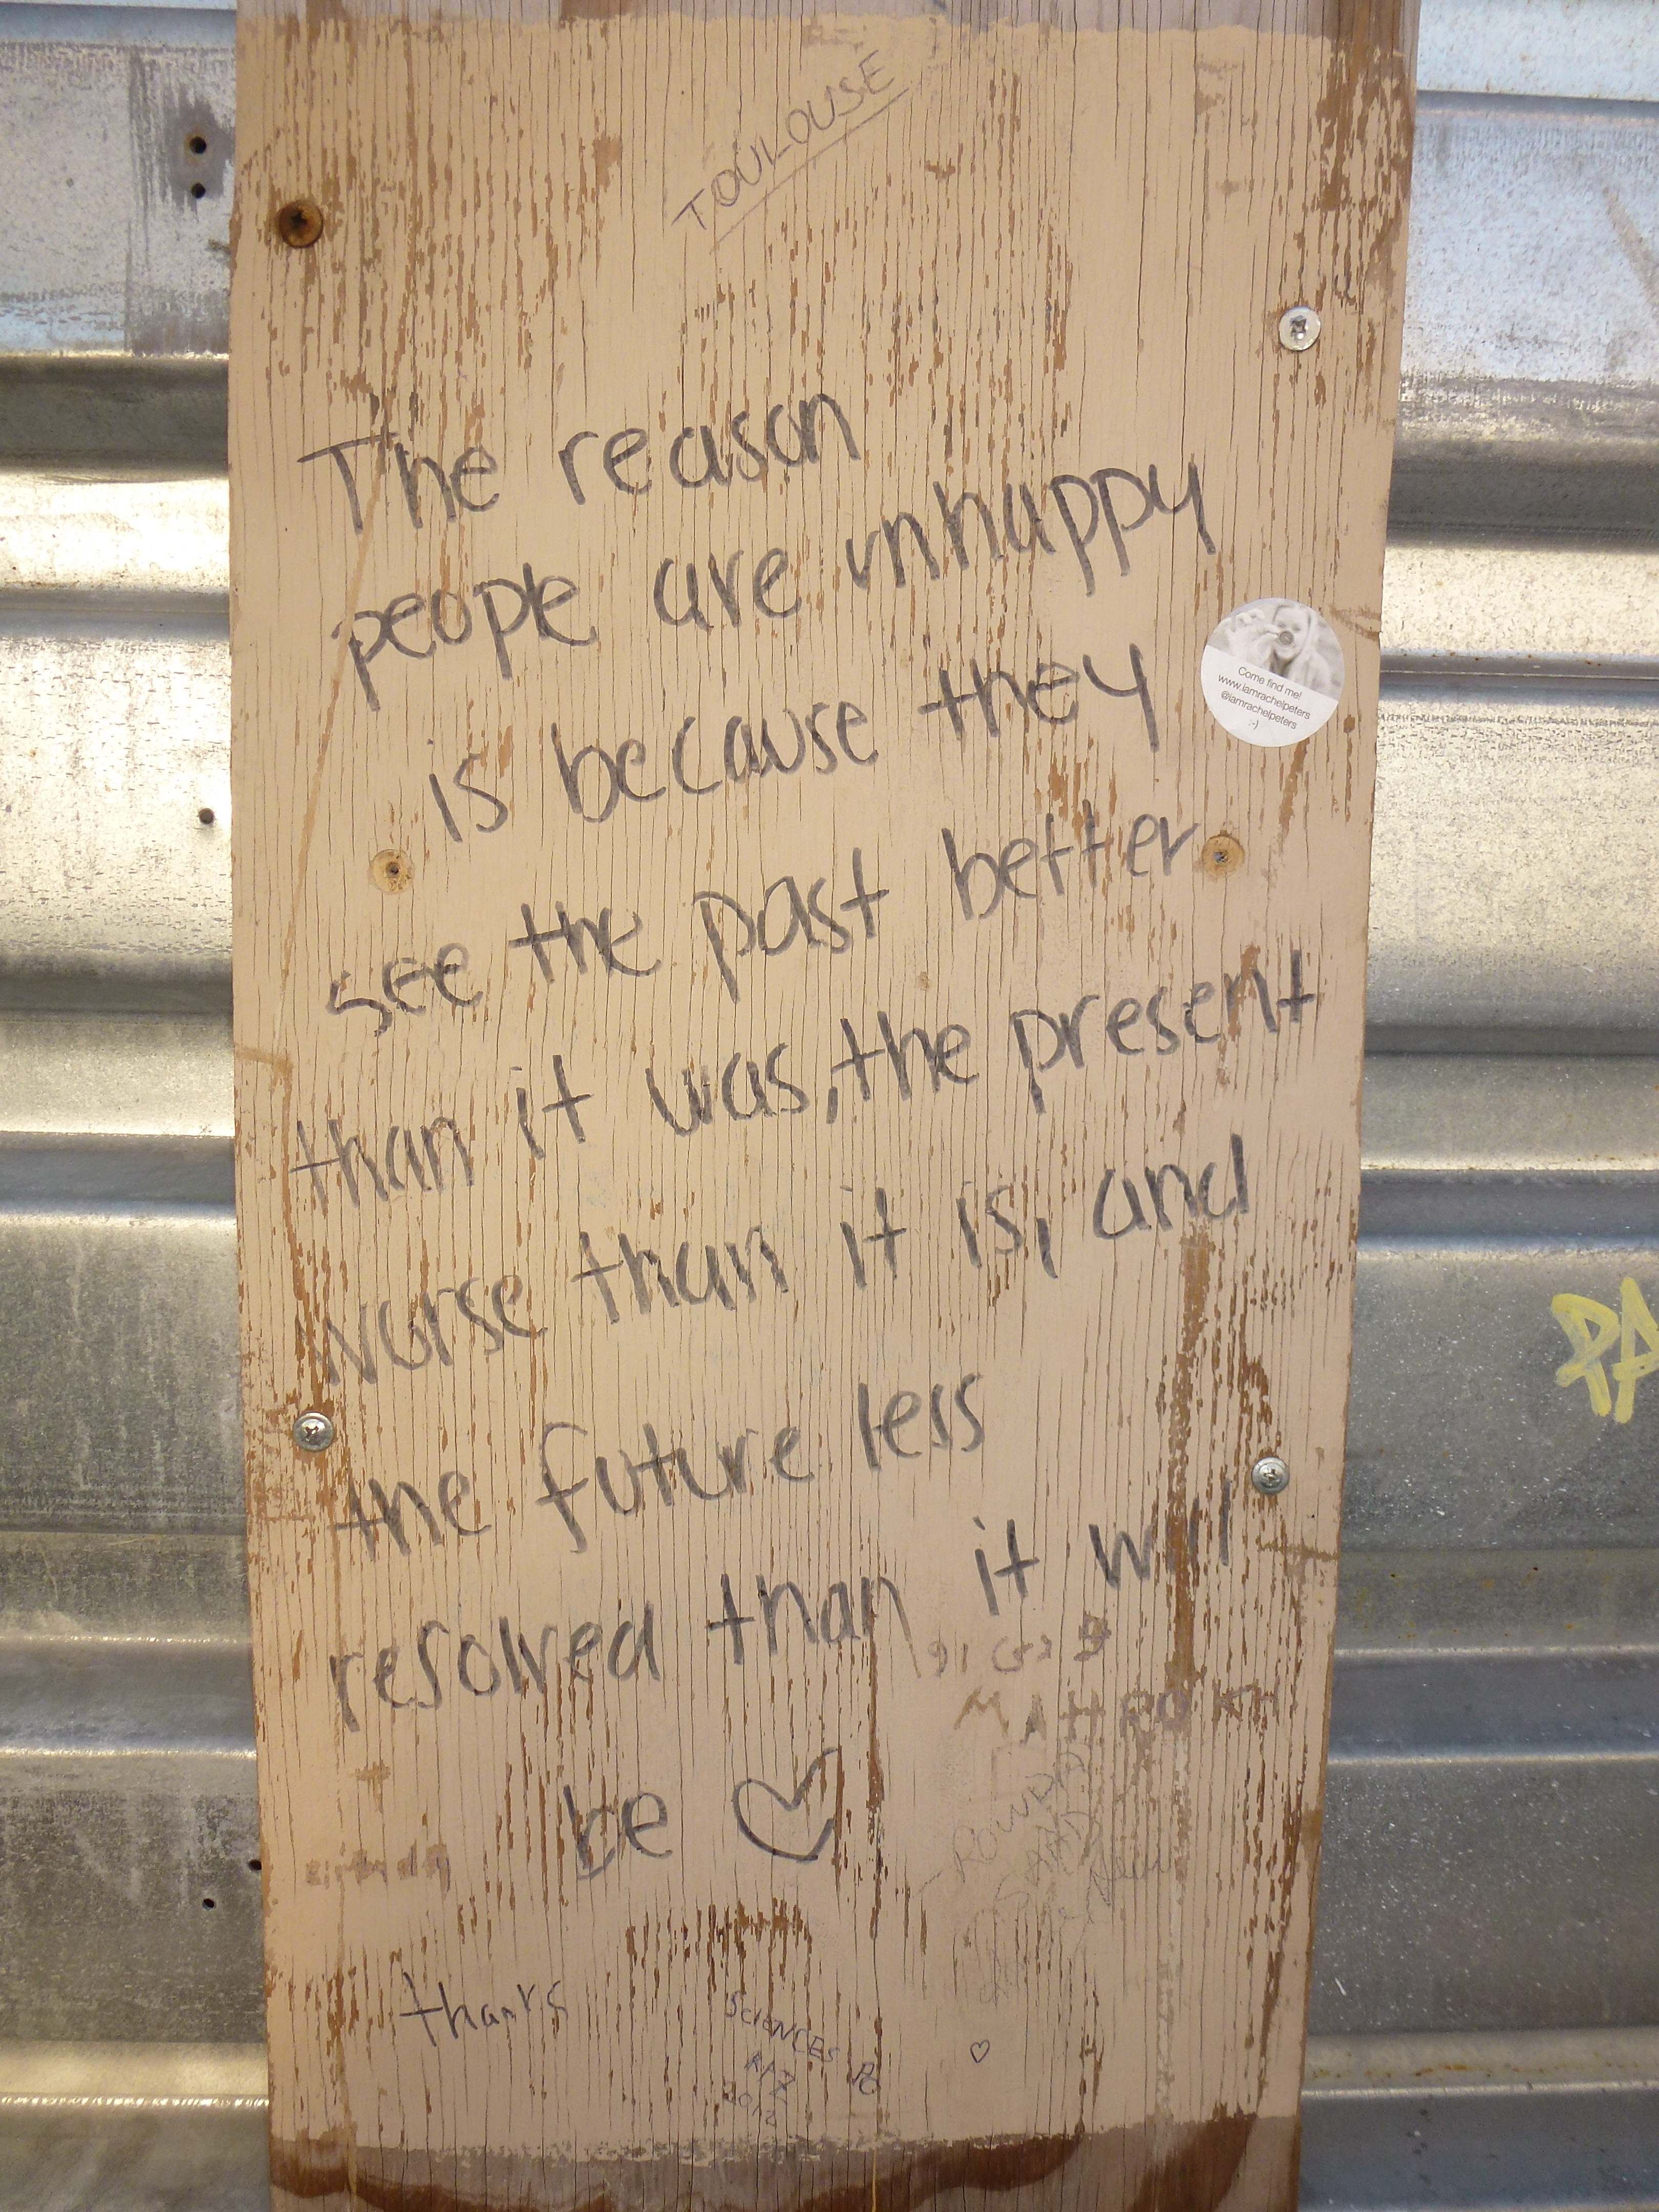 TOULOUSE
The reason
people are unhappy
is because they
see the past better
than it was, the present
worse than it is, and
the future less
resolved than it will
be ♡
Come find me!
www.iamrachelpeters
@iamrachelpeters
:-)
PA
thanks
SCIENCES PO
2012
♡